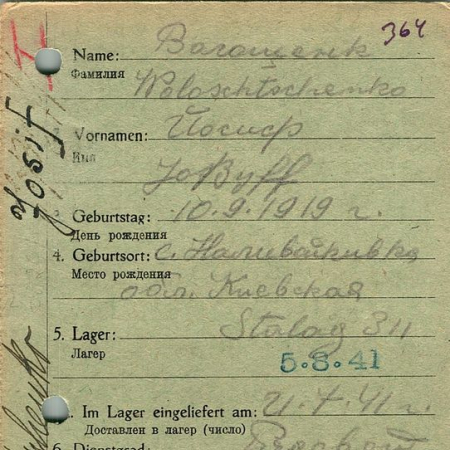 364
Name:
Фамилия
Woloschtschenko
Vornamen: Иосиф
Имя
Josif
Geburtstag: 10.9.1919 г.
День рождения
4. Geburtsort: с. Наливайкивка
Место рождения
обл. Киевская
5. Lager: Stalag 311
Лагерь
5.8.41
Im Lager eingeliefert am: 21.7.41 г.
Доставлен в лагер (число)
6. Dienstgrad: